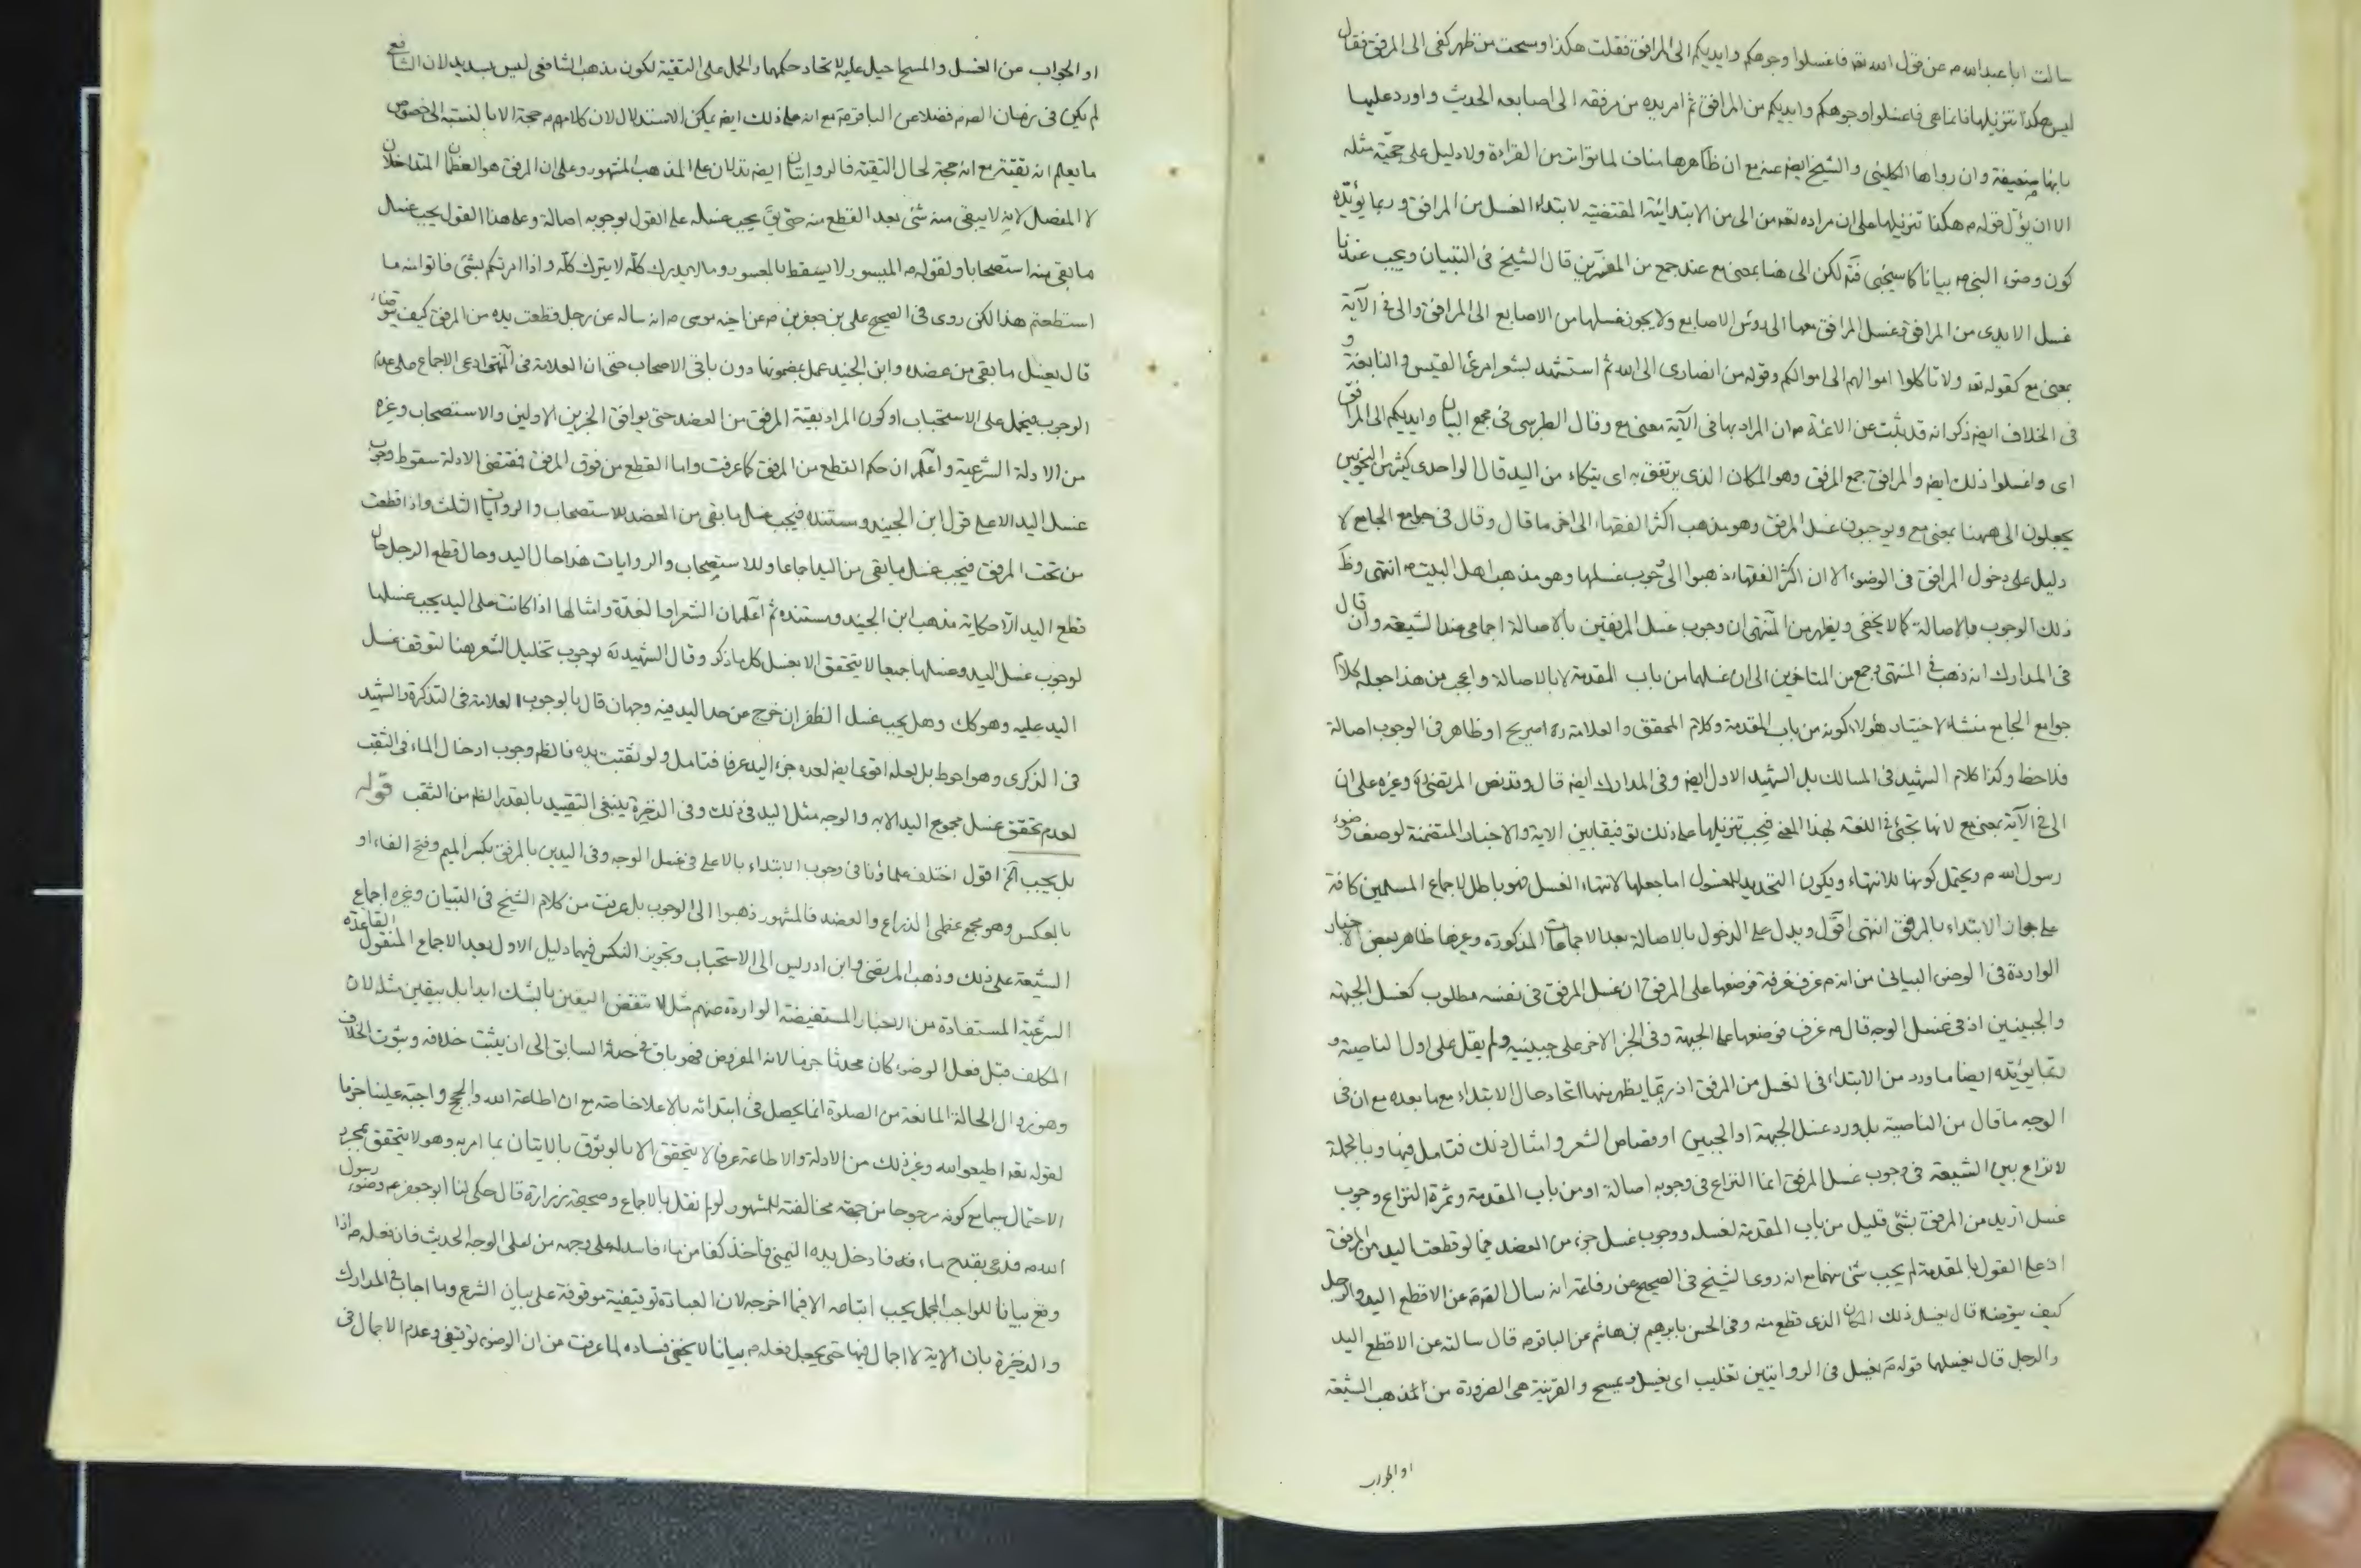 سالت ابا عبد الله م عن قول الله تعه فاغسلوا وجوهكم وايديكم الى المرافق فقلت هكذا ومسحت من ظهر كفى الى المرفق فقال
ليس هكذا تنزيلها انما هى فاغسلوا وجوهكم وايديكم من المرافق ثم امر يده من مرفقه الى اصابعه الحديث واورد عليها
بانها ضعيفة وان رواها الكلينى والشيخ ايضا عنه مع ان ظاهرها مناف لما تواتر من القراءة ولا دليل على حجيّة مثله
الا ان يؤل قوله م هكذا تنزيلها على ان مراده تعه من الى من الابتدائية المقتضية لابتداء الغسل من المرافق وربما يؤيّده
كون وضوء النبى ص بيانا كما سيجئى فتم لكن الى هنا بمعنى مع عند جمع من المفسّرين قال الشيخ فى التبيان ويجب عندنا
غسل الايدى من المرافق وغسل المرافق معها الى رؤس الاصابع ولا يجوز غسلها من الاصابع الى المرافق والى فى الآية
بمعنى مع كقوله تعه ولا تاكلوا اموالهم الى اموالكم وقوله من انصارى الى الله ثم استشهد بشعر امرئ القيس والنابغة و
فى الخلاف ايضا ذكر انه قد يثبت عن الائمة م ان المراد بها فى الآية معنى مع وقال الطبرسى فى مجمع البيان وايديكم الى المرافق
اى واغسلوا ذلك ايضا والمرافق جمع المرفق وهو المكان الذى يرتفق به اى يتكاء من اليد قال الواحدى كثير من النحويين
يجعلون الى ههنا بمعنى مع ويوجبون غسل المرفق وهو مذهب اكثر الفقهاء الى اخر ما قال وقال فى جوامع الجامع لا
دليل على دخول المرافق فى الوضوء الا ان اكثر الفقهاء ذهبوا الى وجوب غسلها وهو مذهب اهل البيت م انتهى وظ
ذلك الوجوب بالاصالة كما لا يخفى ويظهر من المنتهى ان وجوب غسل المرفقين بالاصالة اجماعى عند الشيعة وان قال
فى المدارك انه ذهب فى المنتهى وجمع من المتاخرين الى ان غسلهما من باب المقدمة لا بالاصالة واعجب من هذا جعله كلام
جوامع الجامع منشاء لاختيار هؤلاء كونه من باب المقدمة وكلام المحقق والعلامة ره صريح او ظاهر فى الوجوب اصالة
فلاحظ وكذا كلام الشهيد فى المسالك بل الشهيد الاول ايضا وفى المدارك ايضا قال وقد نص المرتضى ره وغيره على ان
الى فى الآية بمعنى مع لانها تجئى فى اللغة لهذا المعنى فيجب تنزيلها على ذلك توفيقا بين الاية والاخبار المتضمنة لوصف وضوء
رسول الله م ويحتمل كونها للانتهاء ويكون التحديد للمغسول اما جعلها لانتهاء الغسل فهو باطل لاجماع المسلمين كافة
على جواز الابتداء بالمرفق انتهى اقول ويدل على الدخول بالاصالة بعد الاجماعات المذكورة وغيرها ظاهر بعض الاخبار
الواردة فى الوضوء البيانى من انه م غرف غرفة فوضعها على المرفق ان غسل المرفق فى نفسه مطلوب كغسل الجبهة
والجبينين اذ فى غسل الوجه قال م غرف فوضعها على الجبهة وفى الخبر الاخر على جبينه ولم يقل على اول الناصية و
ربما يؤيّده ايضا ما ورد من الابتداء فى الغسل من المرفق اذ ربما يظهر منها اتحاد حال الابتداء مع ما بعده مع ان فى
الوجه ما قال من الناصية بل ورد غسل الجبهة او الجبين او قصاص الشعر وامثال ذلك فتامل فيها وبالجملة
لا نزاع بين الشيعة فى وجوب غسل المرفق انما النزاع فى وجوبه اصالة او من باب المقدمة وثمرة النزاع وجوب
غسل ازيد من المرفق بشئى قليل من باب المقدمة لغسله ووجوب غسل جزء من العضد فيما لو قطعت اليد من المرفق
اذ على القول بالمقدمة لم يجب شئى منهما مع انه روى الشيخ فى الصحيح عن رفاعة انه سال الصه م عن الاقطع اليد والرجل
كيف يتوضاء قال يغسل ذلك المكان الذى قطع منه وفى الحسن بابرهيم بن هاشم عن الباقر م قال سالته عن الاقطع اليد
والرجل قال يغسلهما قوله م يغسل فى الروايتين تغليب اى يغسل ويمسح والقرينة هى الضرورة من المذهب الشيعة
او الجواب
او الجواب عن الغسل والمسح احيل عليه لاتحاد حكمهما والحمل على التقية لكون مذهب الشافعى ليس بسديد لان الشافع
لم يكن فى زمان الصه م فضلا عن الباقر م مع انه على ذلك ايضا يمكن الاستدلال لان كلامهم م حجة الا بالنسبة الى خصوص
ما يعلم انه تقية مع انه حجة لحال التقية فالروايتان ايضا تدلان على المذهب المشهور وعلى ان المرفق هو العظمان المتداخلان
لا المفصل لانه لا يبقى منه شئى بعد القطع منه حتى يق يجب غسله على القول بوجوبه اصالة وعلى هذا القول يجب غسل
ما بقى منه استصحابا ولقوله م الميسور لا يسقط بالمعسور وما لا يدرك كله لا يترك كله واذا امرتكم بشئى فاتوا منه ما
استطعتم هذا لكن روى فى الصحيح على بن جعفر بن م عن اخيه موسى م انه ساله عن رجل قطعت يده من المرفق كيف يتوضاء
قال يغسل ما بقى من عضده وابن الجنيد عمل بمضمونها دون باقى الاصحاب حتى ان العلامة فى المنتهى ادعى الاجماع على عدم
الوجوب فيحمل على الاستحباب او كون المراد بقية المرفق من العضد حتى يوافق الخبرين الاولين والاستصحاب وغيره
من الادلة الشرعية واعلم ان حكم القطع من المرفق كما عرفت واما القطع من فوق المرفق فمقتضى الادلة سقوط وجوب
غسل اليد الا على قول ابن الجنيد ومستنده فيجب غسل ما بقى من العضد للاستصحاب والروايات الثلث واذا قطعت
من تحت المرفق فيجب غسل ما بقى من اليد اجماعا وللاستصحاب والروايات هذا حال اليد وحال قطع الرجل حال
قطع اليد الا حكاية مذهب ابن الجنيد ومستنده ثم اعلم ان الشعر والغدّة وامثالها اذا كانت على اليد يجب غسلها
لوجوب غسل اليد وغسلها جميعا لا يتحقق الا بغسل كل ما ذكر وقال الشهيد ره بوجوب تخليل الشعر هنا لتوقف غسل
اليد عليه وهو كك وهل يجب غسل الظفر ان خرج عن حد اليد فيه وجهان قال بالوجوب العلامة فى التذكرة والشهيد
فى الذكرى وهو احوط بل لعله اقوى ايضا لعده جزء اليد عرفا فتامل ولو ثقبت يده فالظم وجوب ادخال الماء فى الثقب
لعدم تحقق غسل مجموع اليد الا به والوجه مثل اليد فى ذلك وفى الذخيرة ينبغى التقييد بالقدر الظم من الثقب قوله
بل يجب آلخ اقول اختلف علماؤنا فى وجوب الابتداء بالاعلى فى غسل الوجه وفى اليدين بالمرفق بكسر الميم وفتح الفاء او
بالعكس وهو مجمع عظمى الذراع والعضد فالمشهور ذهبوا الى الوجوب بل عرفت من كلام الشيخ فى التبيان وغيره اجماع
الشيعة على ذلك وذهب المرتضى وابن ادريس الى الاستحباب وتجويز النكس فيهما دليل الاول بعد الاجماع المنقول القاعدة
الشرعية المستفادة من الاخبار المستفيضة الواردة منهم مثل لا تنقض اليقين بالشك ابدا بل بيقين مثله لان
المكلف قبل فعل الوضوء كان محدثا جزما لانه المفروض فهو باق فى حدثه السابق الى ان يثبت خلافه وثبوت الخلاف
وهو زوال الحالة المانعة من الصلوة انما يحصل فى ابتدائه بالاعلا خاصة مع ان اطاعة الله والحجج واجبة علينا جزما
لقوله تعه اطيعوا الله وغير ذلك من الادلة والاطاعة عرفا لا يتحقق الا بالوثوق بالاتيان بما امر به وهو لا يتحقق بمجرد
الاحتمال سيما مع كونه مرجوحا من جهة مخالفته للمشهور لو لم نقل بالاجماع وصحيحة زرارة قال حكى لنا ابو جعفر م وضوء رسول
الله م فدعى بقدح ماء فادخل يده اليمنى فاخذ كفا من ماء فاسدله على وجهه من اعلى الوجه الحديث فان فعله م اذا
وقع بيانا للواجب المجمل يجب اتباعه الا فيما اخرجه لان العبادة توقيفية موقوفة على بيان الشرع وما اجاب فى المدارك
والذخيرة بان الاية لا اجمال فيها حتى يجعل فعله م بيانا لا يخفى فساده لما عرفت من ان الوضوء توقيفى وعدم الاجمال فى